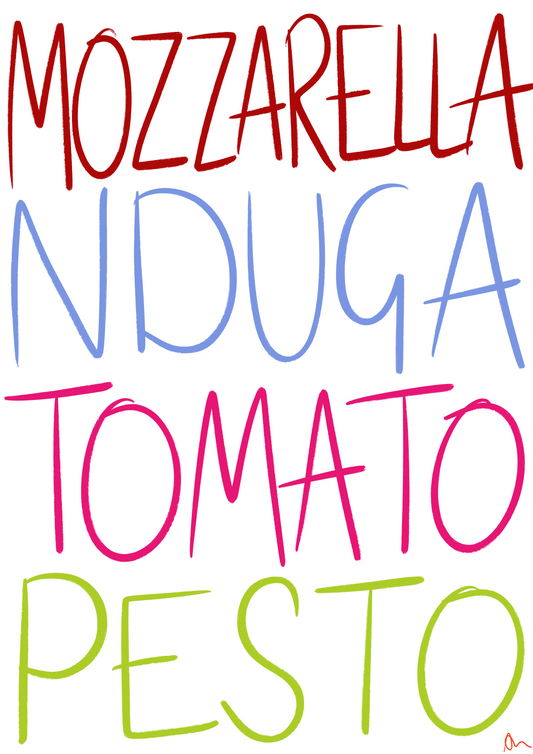 MOZZARELLA
NDUGA
TOMATO
PESTO